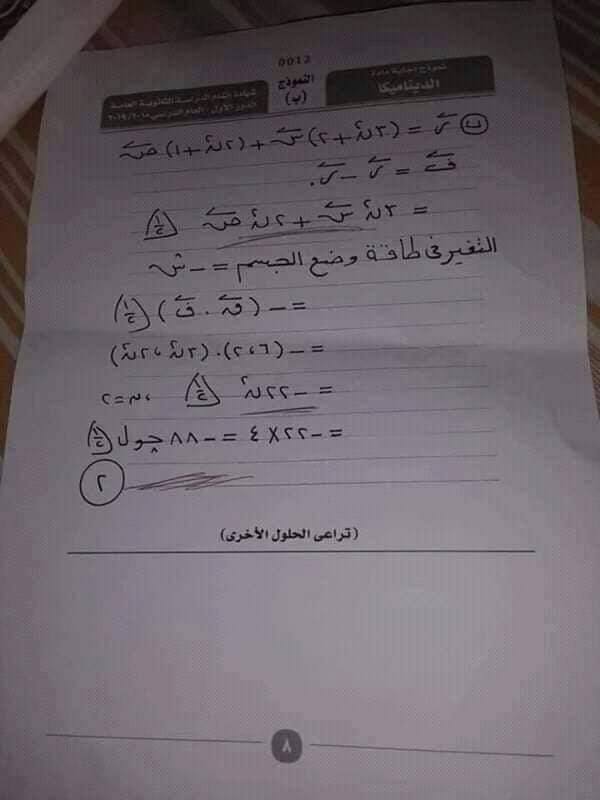 0012
نموذج إجابة مادة
الديناميكا
النموذج
(ب)
شهادة إتمام الدراسة الثانوية العامة
الدور الأول - العام الدراسي ٢٠١٩/٢٠١٨
ب) ر = (٣ن² + ٢) س + (٢ن² + ١) ص
ف = ر - ر.
= ٣ن² س + ٢ن² ص ½
التغير فى طاقة وضع الجسم = - ش
= - (ق . ف) ½
= - (٢،٦) . (٣ن²، ٢ن²)
= - ٢٢ن² ½ ، ن = ٢
= - ٢٢ × ٤ = - ٨٨ جول ½
٢
(تراعى الحلول الأخرى)
٨